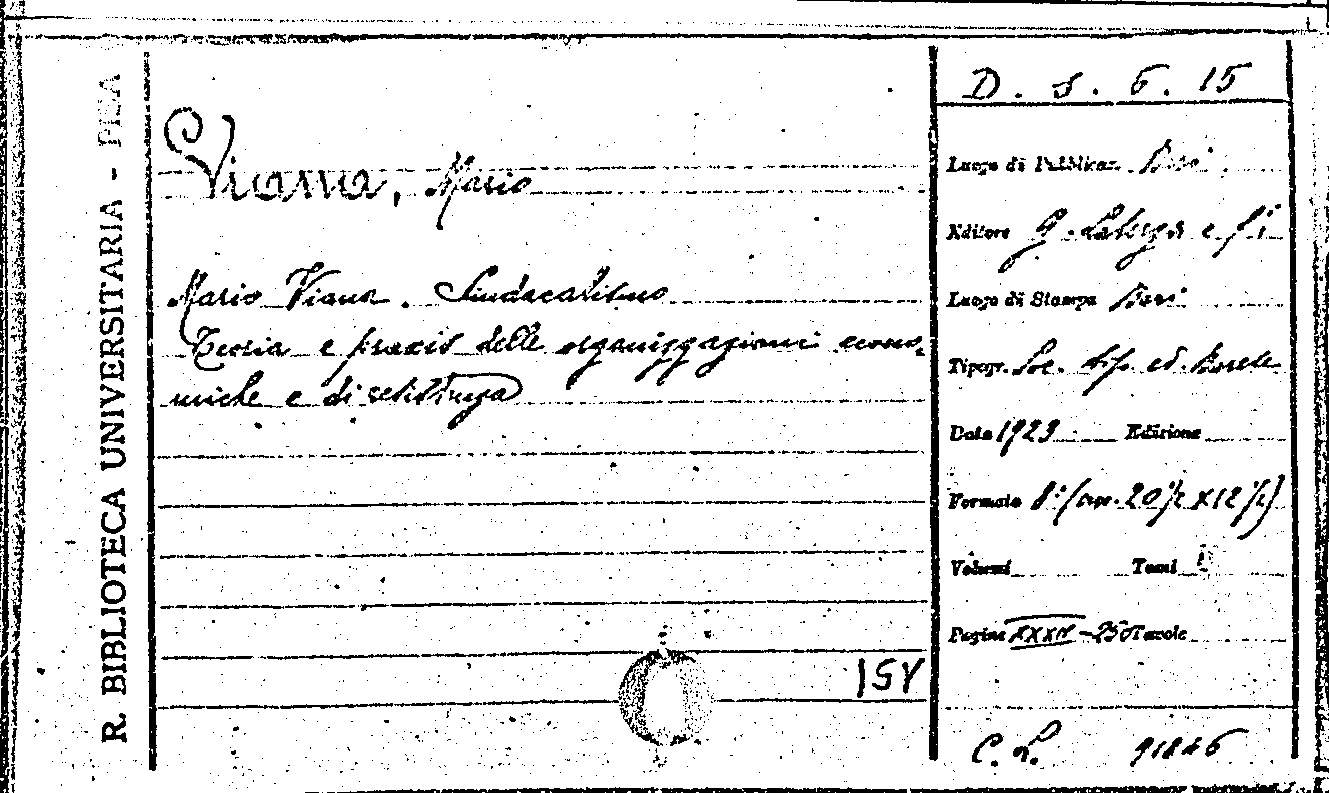 R. BIBLIOTECA UNIVERSITARIA - PISA
Viana, Mario
Mario Viana. Sindacalismo
Teoria e praxis delle organizzazioni econo-
miche e di
ISY
D. s. 6. 15
Luogo di Pubblicaz. Bari
Editore G. Laterza e f.i
Luogo di Stampa Bari
Tipogr. Soc. tip. ed. Barese
Data 1923 Edizione
Formato 8° (cm. 20 1/2 x 12 1/2)
Volumi Tomi
Pagine XXXIV - 250 Tavole
C. L. 91846